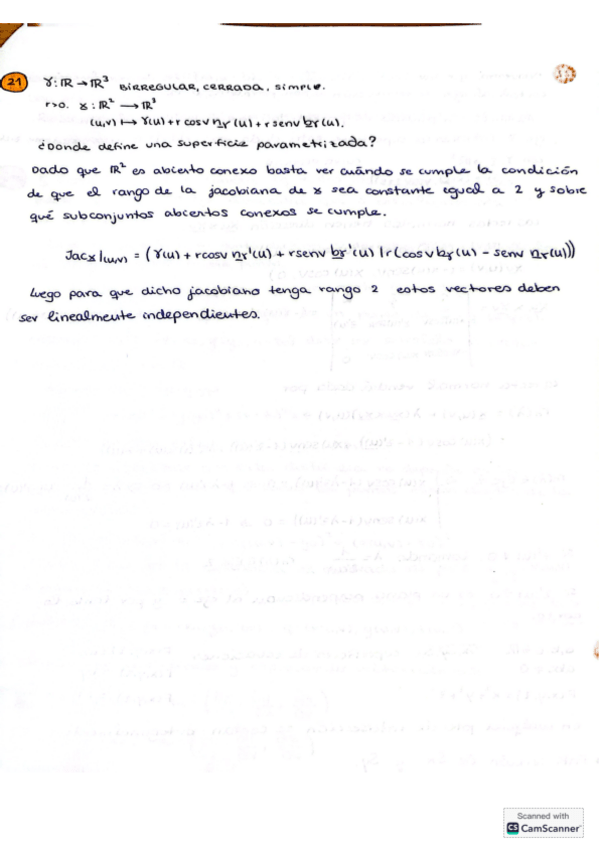 21 γ: ℝ → ℝ³ BIRREGULAR, CERRADA, SIMPLE.
r>0. x: ℝ² → ℝ³
(u,v) ↦ γ(u) + r cosv nγ(u) + r senv bγ(u).
¿Donde define una superficie parametrizada?
Dado que ℝ² es abierto conexo basta ver cuándo se cumple la condición
de que el rango de la jacobiana de x sea constante igual a 2 y sobre
qué subconjuntos abiertos conexos se cumple.
Jac x|(u,v) = (γ(u) + rcosv nγ'(u) + rsenv bγ'(u) | r(cosv bγ(u) - senv nγ(u)))
Luego para que dicho jacobiano tenga rango 2 estos vectores deben
ser linealmente independientes.
Scanned with
CS CamScanner